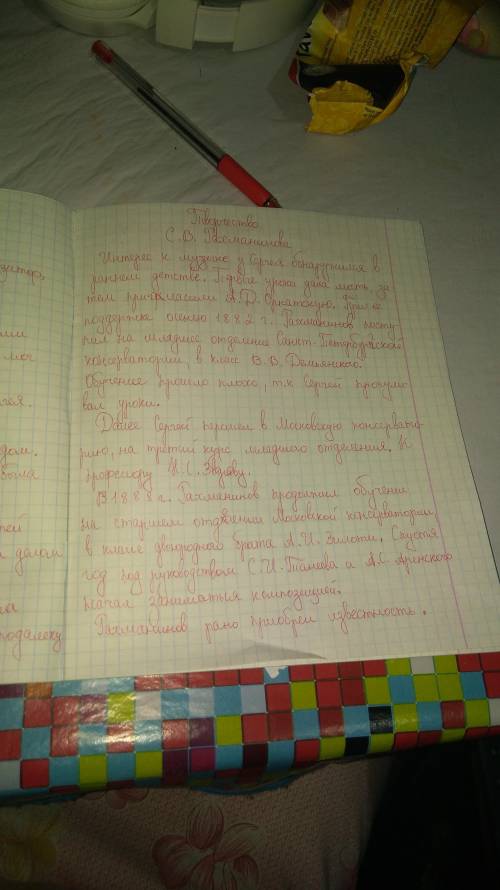 Творчество
С.В. Рахманинова
Интерес к музыке у Сергея обнаружился в
раннем детстве. Первые уроки дала мать, за
тем пригласили А.Д. Орнатскую. При её
поддержке осенью 1882 г. Рахманинов посту
пил на младшее отделение Санкт-Петербургской
консерватории, в класс В.В. Демянского.
Обучение прошло плохо, т.к Сергей прогули
вал уроки.
Далее Сергей перешел в Московскую консервато
рию, на третий курс младшего отделения. К
профессору Н.С. Звереву.
В 1888 г. Рахманинов продолжил обучение
на старшем отделении Московской консерватории
в классе двоюродного брата А.И. Зилоти. Спустя
год под руководством С.И. Танеева и А.С. Аренского
начал заниматься композицией.
Рахманинов рано приобрел известность.
мог
дом.
была
делам
подалеку